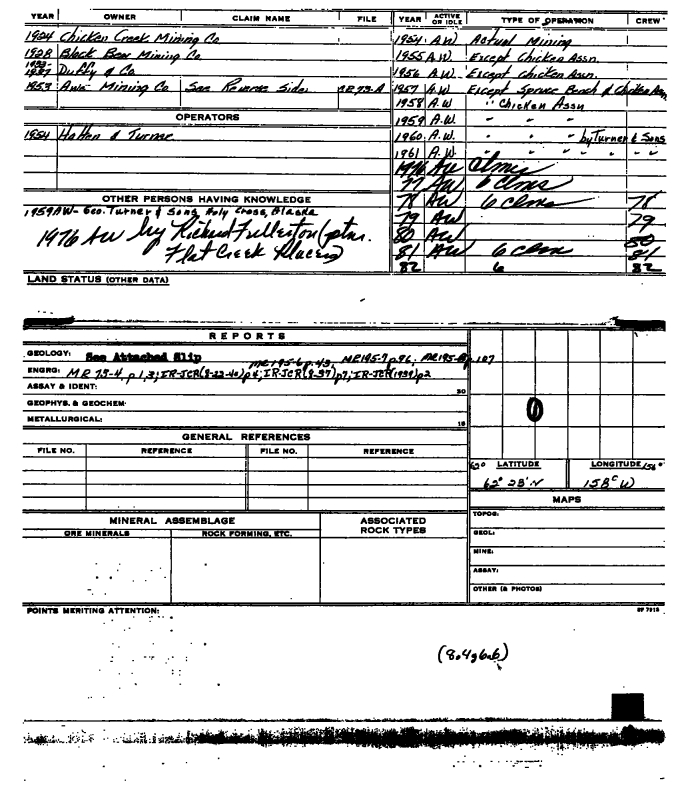 YEAR OWNER CLAIM NAME FILE YEAR ACTIVE OR IDLE TYPE OF OPERATION CREW
1924 Chicken Creek Mining Co. 1954 A.W. Actual Mining
1928 Black Bear Mining Co 1955 A.W. Except Chicken Assn.
1937 Duffy & Co. 1956 A.W. Except Chicken Assn.
1953 Aws Mining Co See Reverse Side. 1957 A.W. Except Spruce Bench & Chicken Assn
1958 A.W " Chicken Assn
OPERATORS 1959 A.W. " " "
1954 Hatten & Turner 1960 A.W. " " " by Turner & Sons
1961 A.W. " " " " "
1976 AW clms
77 AW 6 clms
OTHER PERSONS HAVING KNOWLEDGE 78 AW 6 clms 78
1959 AW- Geo. Turner & Sons, Holy Cross, Alaska 79 AW 79
1976 AW by Richard Fullerton (ptnr. 80 AW 80
Flat Creek Placers) 81 AW 6 clms 81
82 6 82
LAND STATUS (OTHER DATA)
REPORTS
GEOLOGY: See Attached Slip MR195-6 p.43, MR195-7 p.96, p. 107
ENGRG: MR 73-4, p1,3; IR-JCR(8-22-40)p4; IR-JCR(8-37)p7; IR-JCR(1939)p2
ASSAY & IDENT: 20
GEOPHYS. & GEOCHEM:
METALLURGICAL:
GENERAL REFERENCES
FILE NO. REFERENCE FILE NO. REFERENCE
62° LATITUDE LONGITUDE 156°
62° 28' N 158° W
MAPS
MINERAL ASSEMBLAGE ASSOCIATED ROCK TYPES TOPOG:
ORE MINERALS ROCK FORMING, ETC. GEOL:
MINE:
ASSAY:
OTHER (& PHOTOS)
POINTS MERITING ATTENTION: